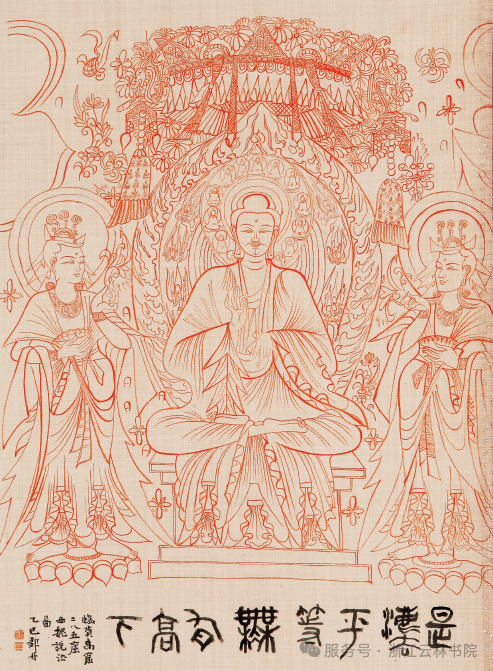 是灋平等無有高下
臨莫高窟
二八五窟
西魏說法
圖
乙巳
服务号 · 浙江云林书院